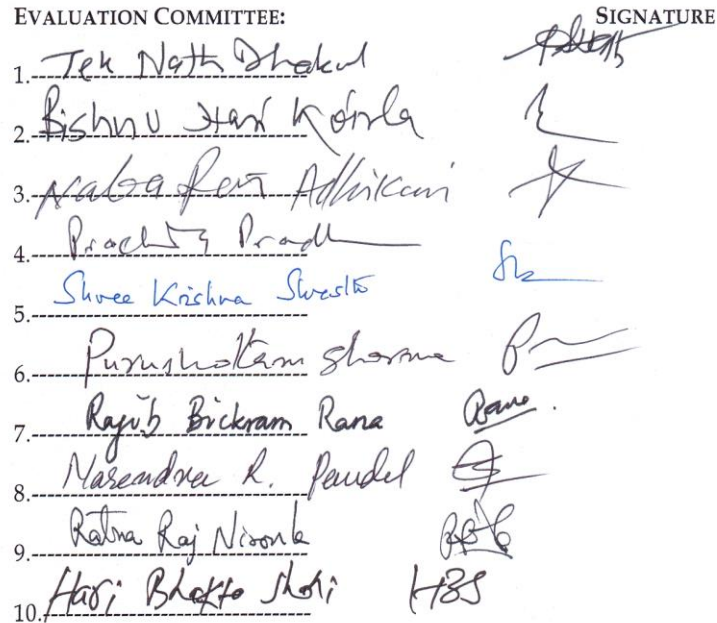 EVALUATION COMMITTEE: SIGNATURE
1. Tek Nath Dhakal
2. Bishnu Hari Koirla
3. Naba Raj Adhikari
4. Prachanda Pradhan
5. Shree Krishna Shrestha
6. Purushottam Sharma
7. Rajib Bickram Rana Rana
8. Narendra R. Paudel
9. Ratna Raj Niroula
10. Hari Bhakta Shahi HBS